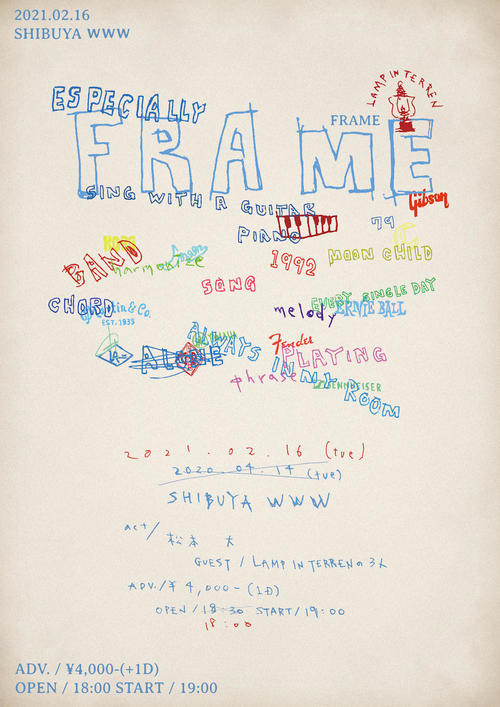 2021.02.16
SHIBUYA WWW
ESPECIALLY
LAMP IN TERREN
FRAME
FRAME
SING WITH A GUITAR
Gibson
PIANO
79
BAND
harmonize
1992
MOON CHILD
SONG
CHORD
tin & Co.
EST. 1833
melody
EVERY SINGLE DAY
ERNIE BALL
ALONE
ALWAYS
Fender
PLAYING
IN MY ROOM
phrase
SENNHEISER
2021.02.16 (tue)
2020.04.14 (tue)
SHIBUYA WWW
act/
松本 大
GUEST / LAMP IN TERRENの3人
ADV./¥4,000-(1D)
OPEN/18:30 START/19:00
18:00
ADV. / ¥4,000-(+1D)
OPEN / 18:00 START / 19:00